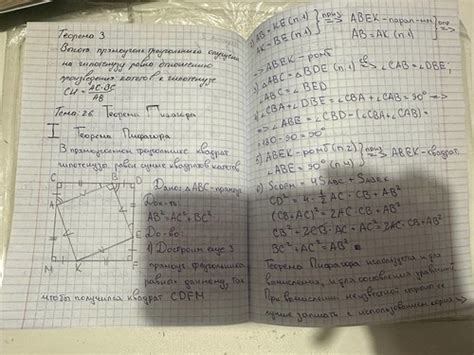 Теорема 3
Высота прямоугол. треугольника опущенная
на гипотенузу равна отношению
произведения катетов к гипотенузе
CH = AC·BC/AB
Тема: 26 Теорема Пифагора
I Теорема Пифагора
В прямоугольном треугольнике квадрат
гипотенузы равен сумме квадратов катетов
Дано: △ABC-прямоуг
Док-ть:
AB²=AC²+BC²
До-во:
1) Достроим еще 3
прямоуг. треугольника
равных данному, так
чтобы получился квадрат CDFM
C B D
A
E
M K F
2) AB = KE (п.1)
AK = BE (п.1)
ABEK - парал-мм
AB = AK (п.1)
=> ABEK - ромб
3) △ABC = △BDE (п.1) => ∠CAB = ∠DBE;
∠ABC = ∠BED
4) ∠CBA + ∠DBE = ∠CBA + ∠CAB = 90° =>
=> ∠ABE = ∠CBD - (∠CBA + ∠CAB) =
= 180 - 90 = 90°
5) ABEK - ромб (п.2)
∠ABE = 90° (п.4)
=> ABEK - квадрат
6) SCDFM = 4SABC + SABEK
CD² = 4·½AC·CB + AB²
(CB+AC)² = 2AC·CB + AB²
CB² + 2CB·AC + AC² = 2AC·CB + AB²
BC² + AC² = AB²
Теорема Пифагора используется и для
вычисления, и для составления уравнений
При вычислении неизвестной стороны
лучше записать с использованием корня